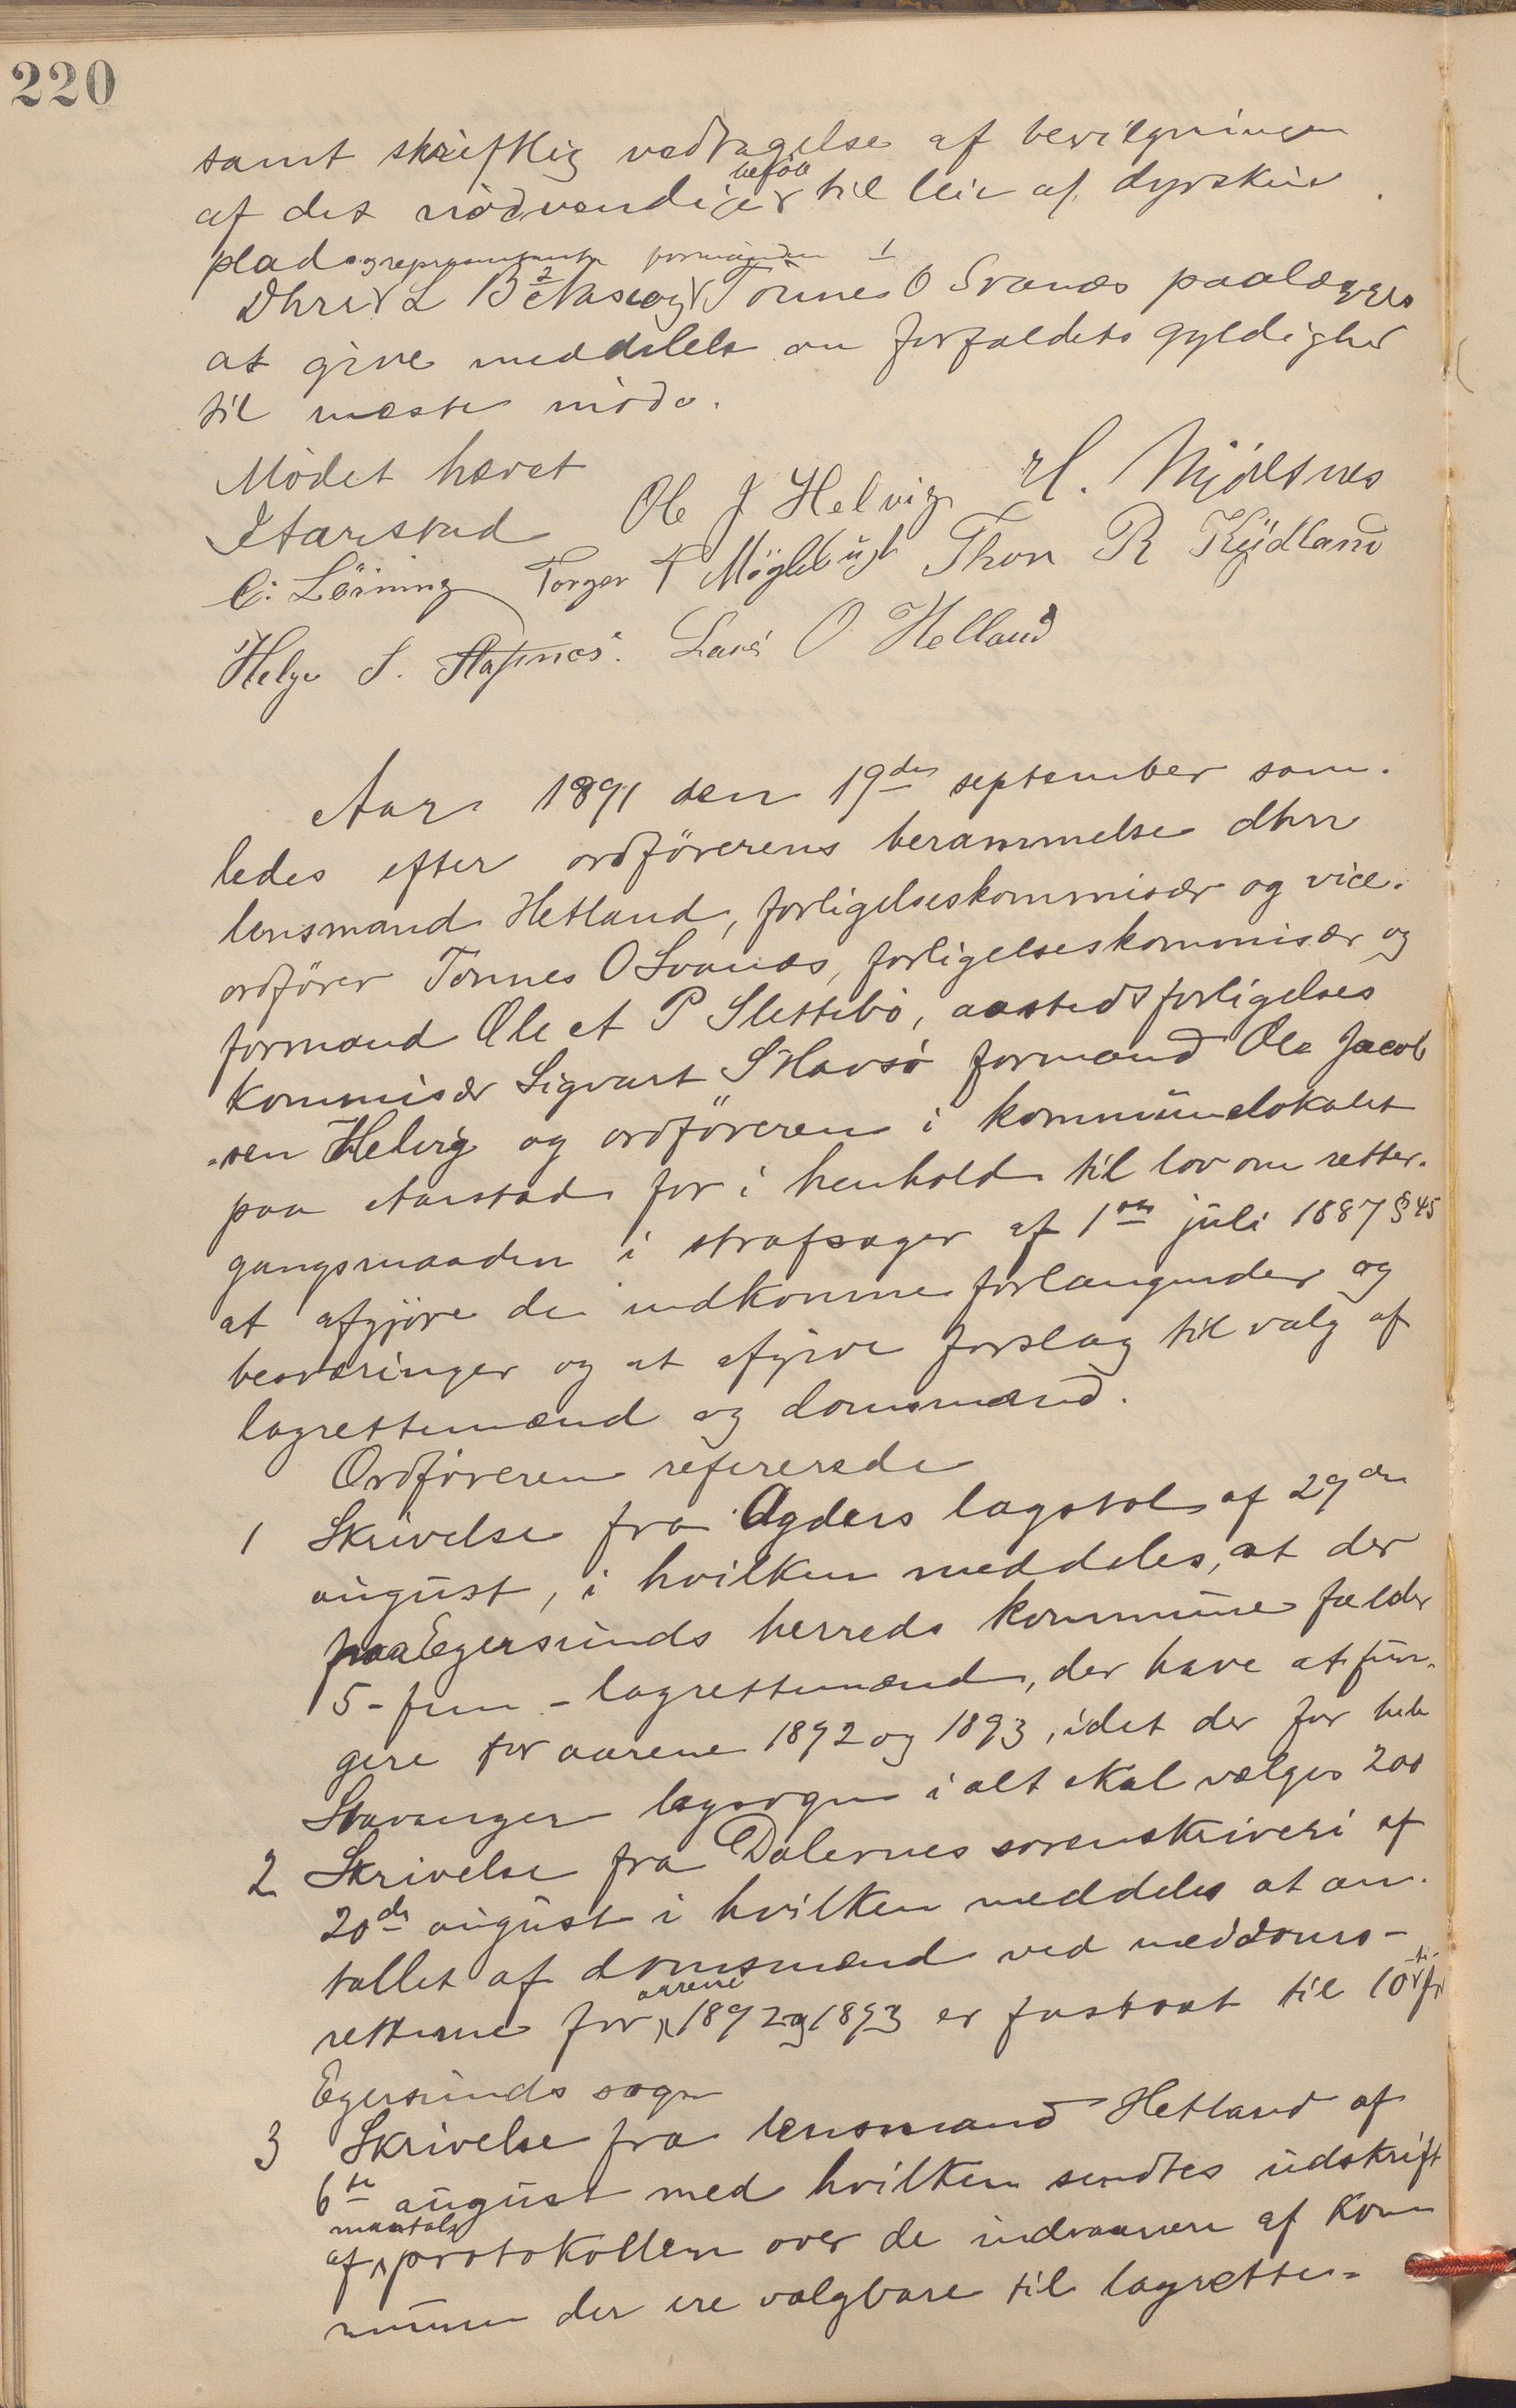 220
samt skriftlig vedtagelse af bevilgningen
af det nødvendige beløb til leie af dyrskue
plads
Dhrr repræsentant L B Aase og formanden Tønnes O Svanæs paalægges
at give meddelelse om forfaldets gyldighed
til næste møde.
Mødet hævet
Aarstad Ole J Helvig H. Mjølsnes
C. Læining Torger T Møglebust Thore R Kydland
Helge S. Hafsnes. Lars O Helland
Aar 1891 den 19de september sam-
ledes efter ordførerens berammelse dhrr
lensmand Hetland, forligelseskommisær og vice-
ordfører Tønnes O Svanæs, forligelseskommisær og
formand Ole A P Slettebø, aasteds forligelses
kommisær Sigvart S Havsø formand Ole Jacob
sen Helvig og ordføreren i kommunelokalet
paa Aarstad for i henhold til lov om retter-
gangsmaaden i strafsager af 1ste juli 1887 § 45
at afgjøre de indkomne forlangender og
besværinger og at afgive forslag til valg af
lagrettemænd og domsmænd.
Ordføreren refererede
1 Skrivelse fra Agders lagstol af 29de
august, i hvilken meddeles, at der
paa Egersunds herreds kommune falder
5 - fem - lagrettemænd, der have at fun-
gere for aarene 1892 og 1893, idet der for hele
Stavanger lagsogn i alt skal vælges 200
2 Skrivelse fra Dalernes sorenskriveri af
20de august i hvilken meddeles at an-
tallet af domsmænd ved meddoms-
retterne for aarene 1892 og 1893 er fastsat til 10 -ti- for
Egersunds sogn
3 Skrivelse fra lensmand Hetland af
6te august med hvilken sendtes udskrift
af mantalsprotokollen over de indvaanere af kom
munen der ere valgbare til lagrette-